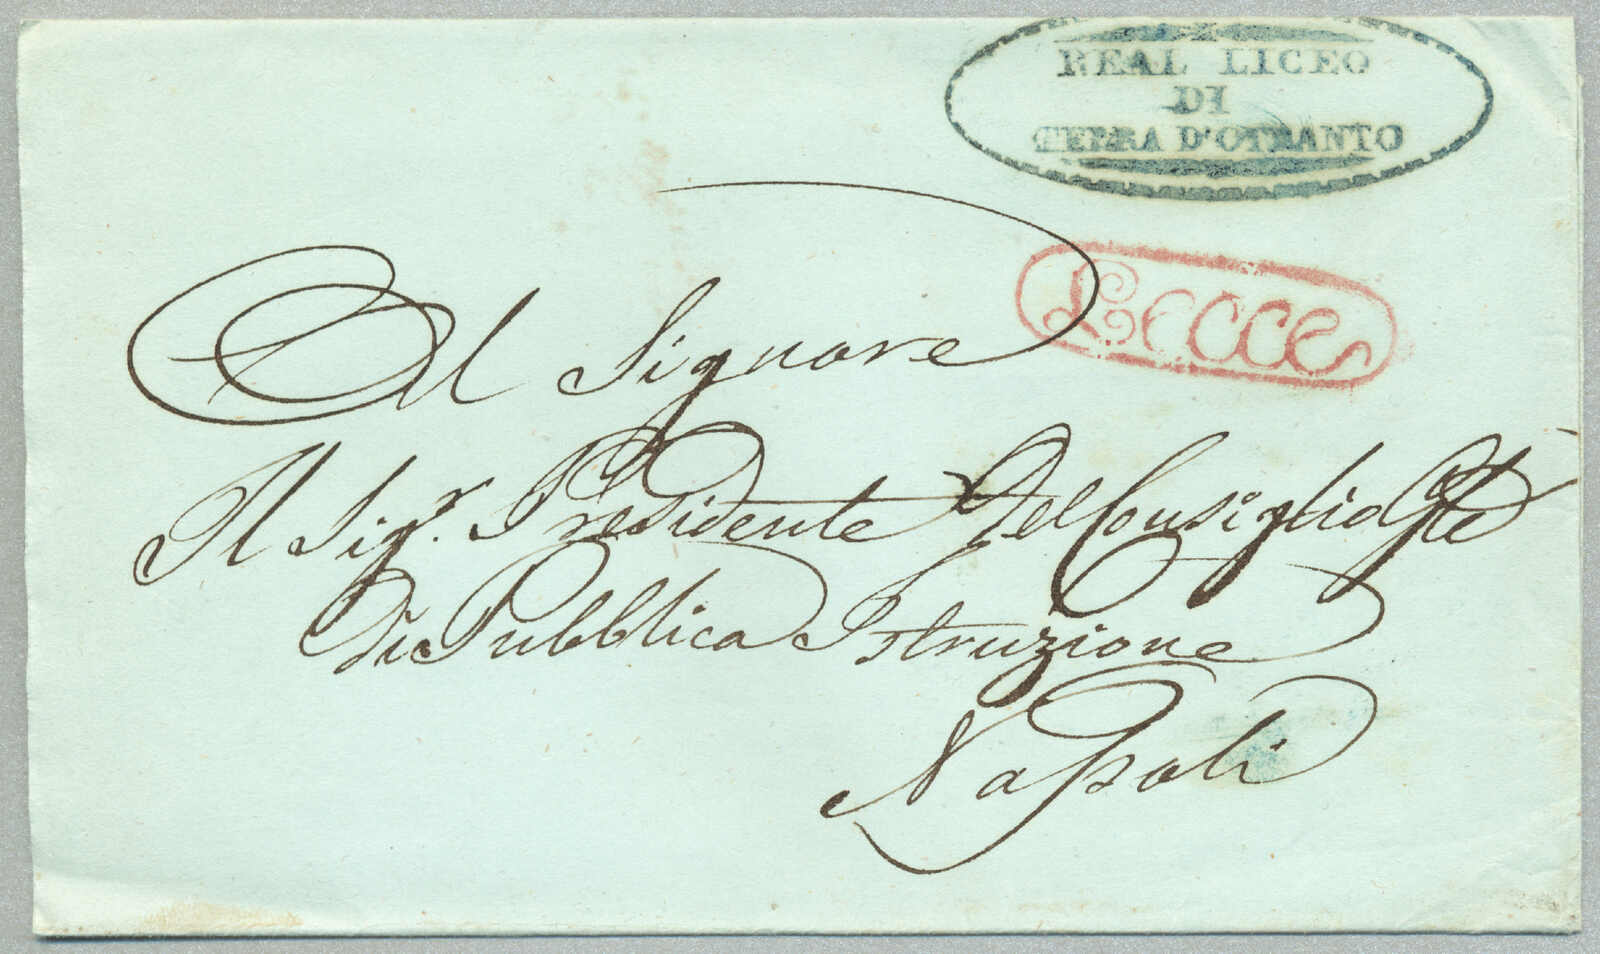 REAL LICEO
DI
TERRA D'OTRANTO
Lecce
Al Signore
Il Sig.r Presidente del Consiglio Gle
di Pubblica Istruzione
Napoli